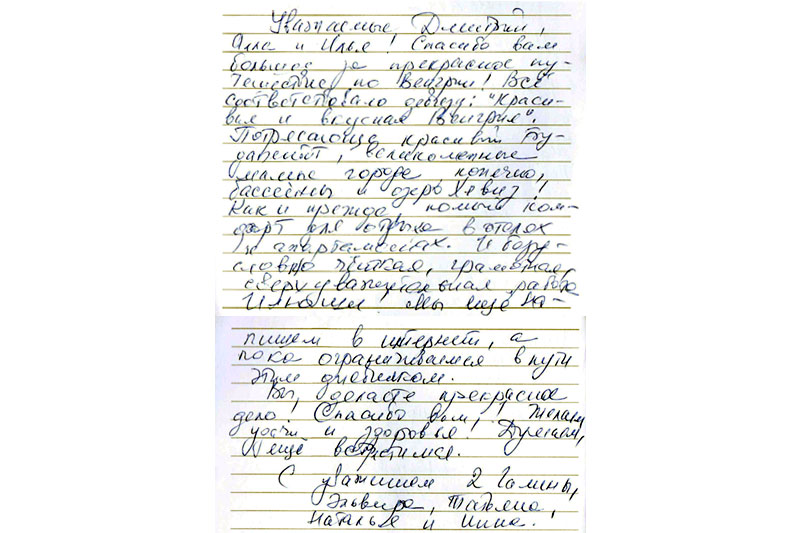 Уважаемые Дмитрий,
Алла и Илья! Спасибо вам
большое за прекрасное пу-
тешествие по Венгрии! Всё
соответствовало девизу: "Краси-
вая и вкусная Венгрия".
Потрясающе красивый Бу-
дапешт, великолепные
малые города, конечно,
бассейны и озеро Хевиз!
Как и прежде, полный ком-
форт для отдыха в отелях
и апартаментах. И безу-
словно чёткая, грамотная,
сверхуважительная работа
Илюши! Мы ещё на-
пишем в интернет, а
пока ограничиваемся в пути
этим дневником.
Вы делаете прекрасное
дело! Спасибо вам! Желаем
удачи и здоровья! Думаем,
ещё встретимся.
С уважением 2 Галины,
Эльвира, Татьяна,
Наталья и Нина.